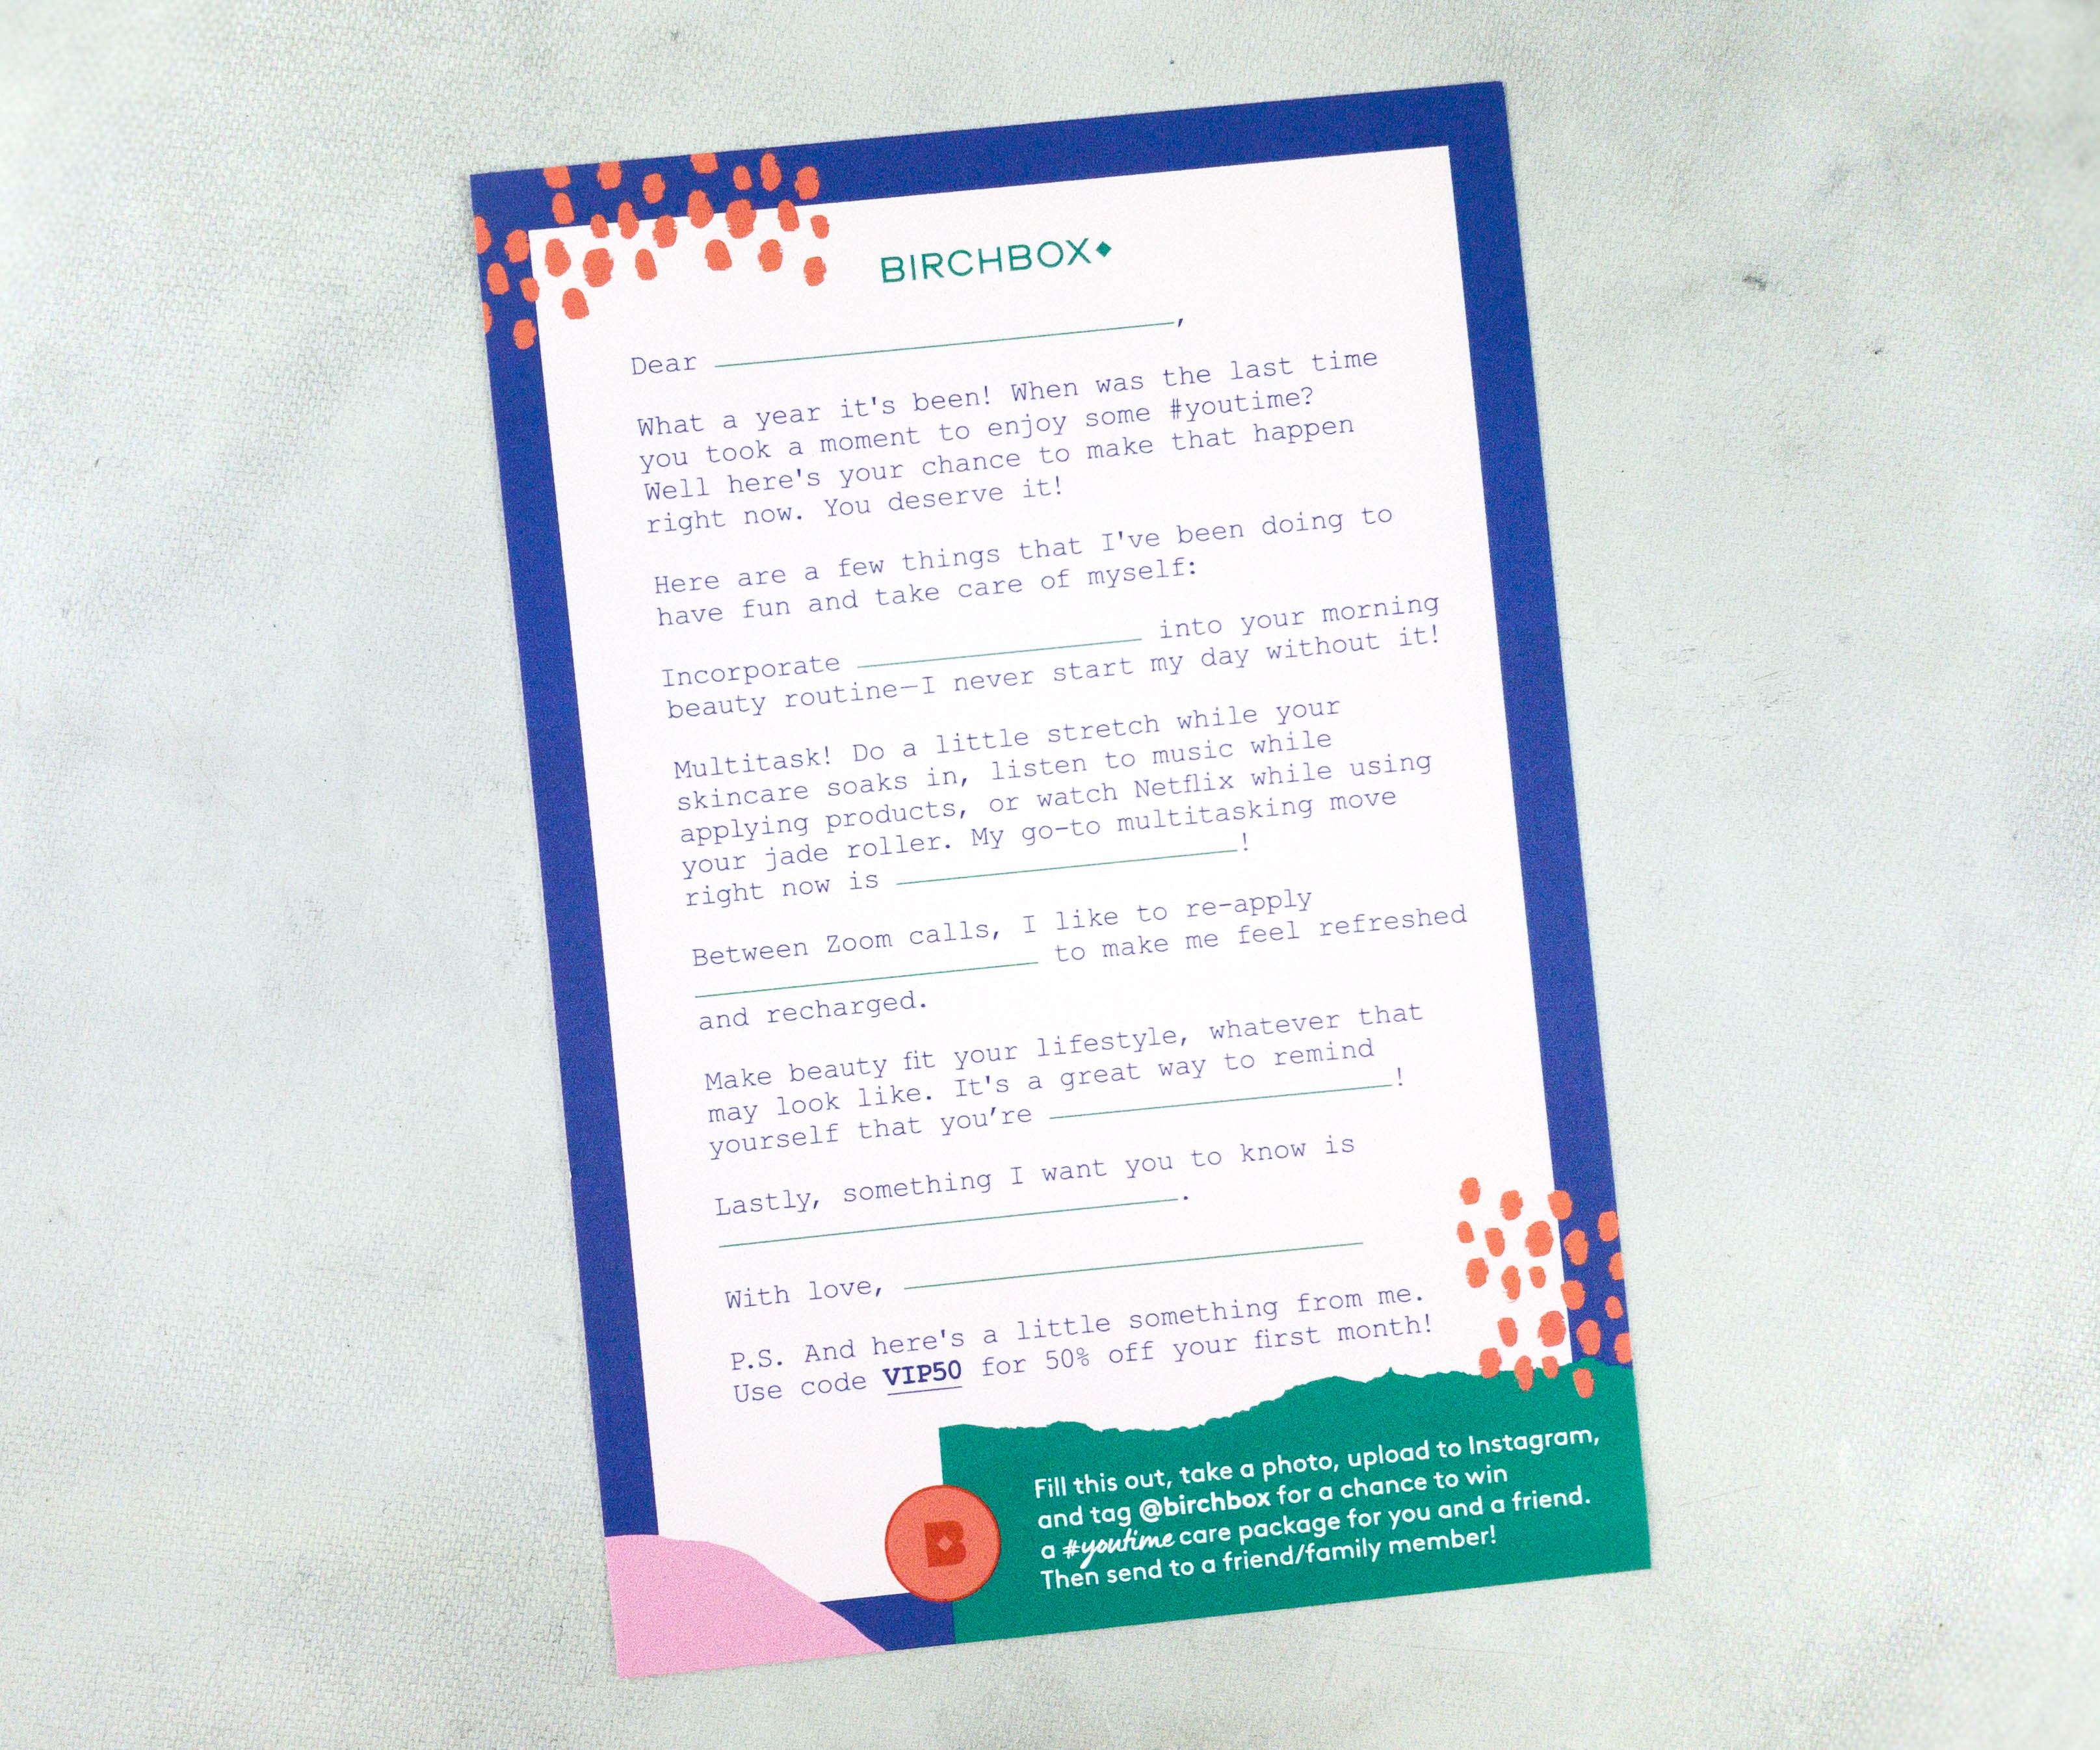 BIRCHBOX
Dear ,
What a year it's been! When was the last time
you took a moment to enjoy some #youtime?
Well here's your chance to make that happen
right now. You deserve it!
Here are a few things that I've been doing to
have fun and take care of myself:
Incorporate into your morning
beauty routine—I never start my day without it!
Multitask! Do a little stretch while your
skincare soaks in, listen to music while
applying products, or watch Netflix while using
your jade roller. My go-to multitasking move
right now is !
Between Zoom calls, I like to re-apply
to make me feel refreshed
and recharged.
Make beauty fit your lifestyle, whatever that
may look like. It's a great way to remind
yourself that you’re !
Lastly, something I want you to know is
.
With love,
P.S. And here's a little something from me.
Use code VIP50 for 50% off your first month!
Fill this out, take a photo, upload to Instagram,
and tag @birchbox for a chance to win
a #youtime care package for you and a friend.
Then send to a friend/family member!
B